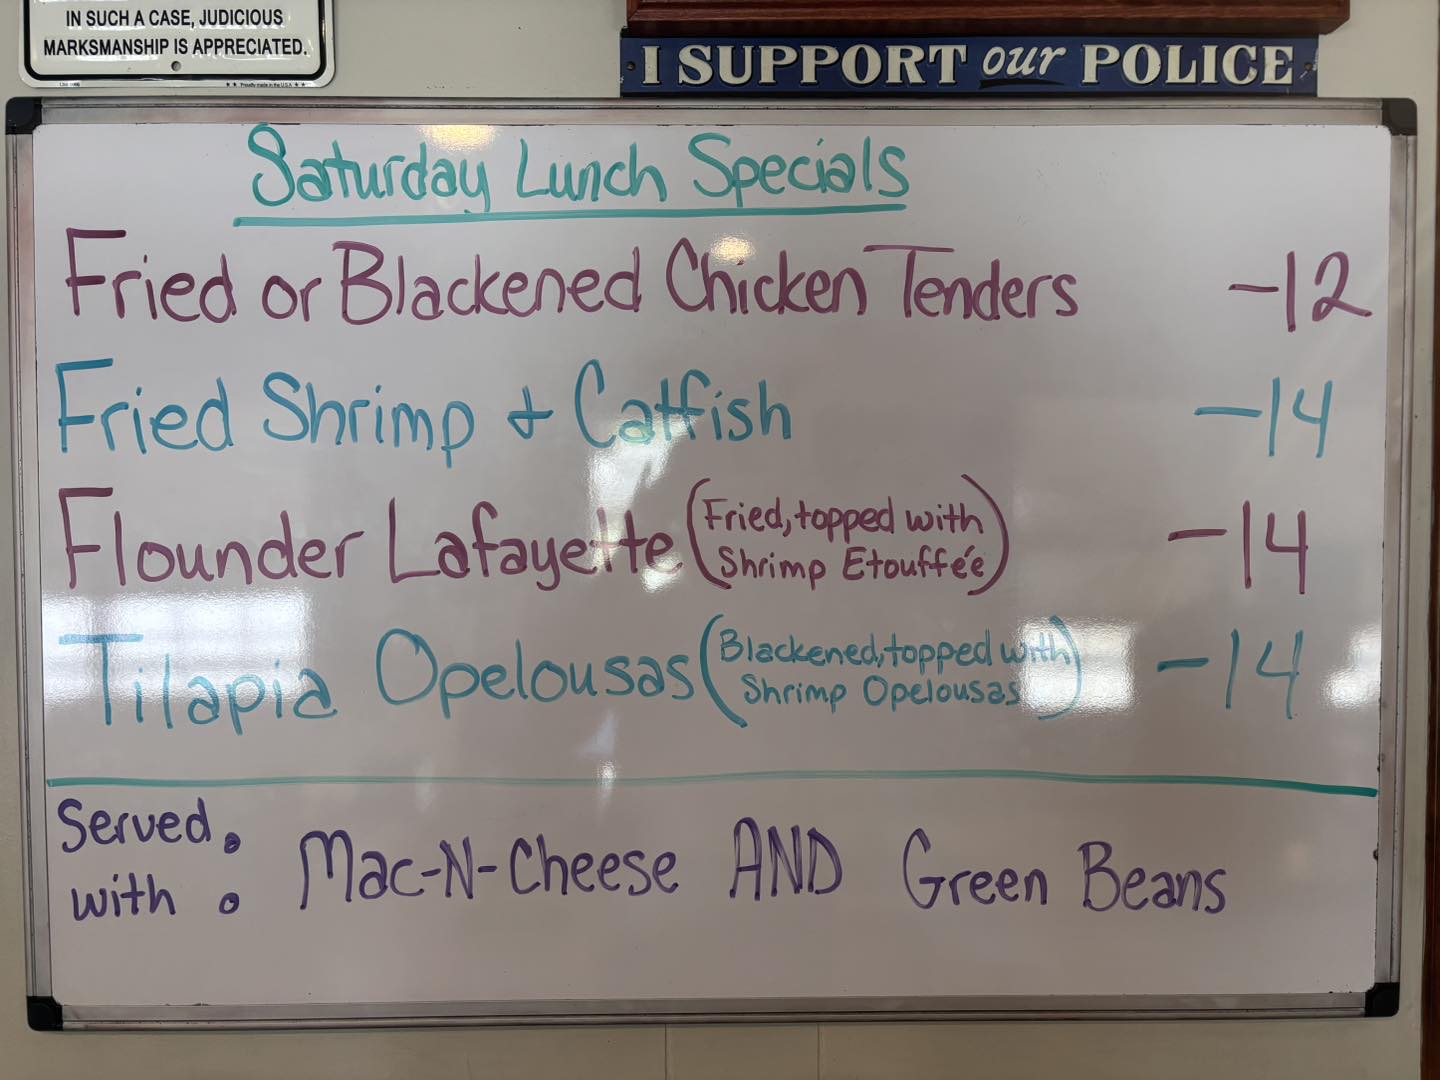 IN SUCH A CASE, JUDICIOUS
MARKSMANSHIP IS APPRECIATED.
★ ★ Proudly made in the U.S.A ★ ★
I SUPPORT our POLICE
Saturday Lunch Specials
Fried or Blackened Chicken Tenders -12
Fried Shrimp & Catfish -14
Flounder Lafayette (Fried, topped with
Shrimp Etouffeé) -14
Tilapia Opelousas (Blackened, topped with
Shrimp Opelousas) -14
Served
with : Mac-N-Cheese AND Green Beans